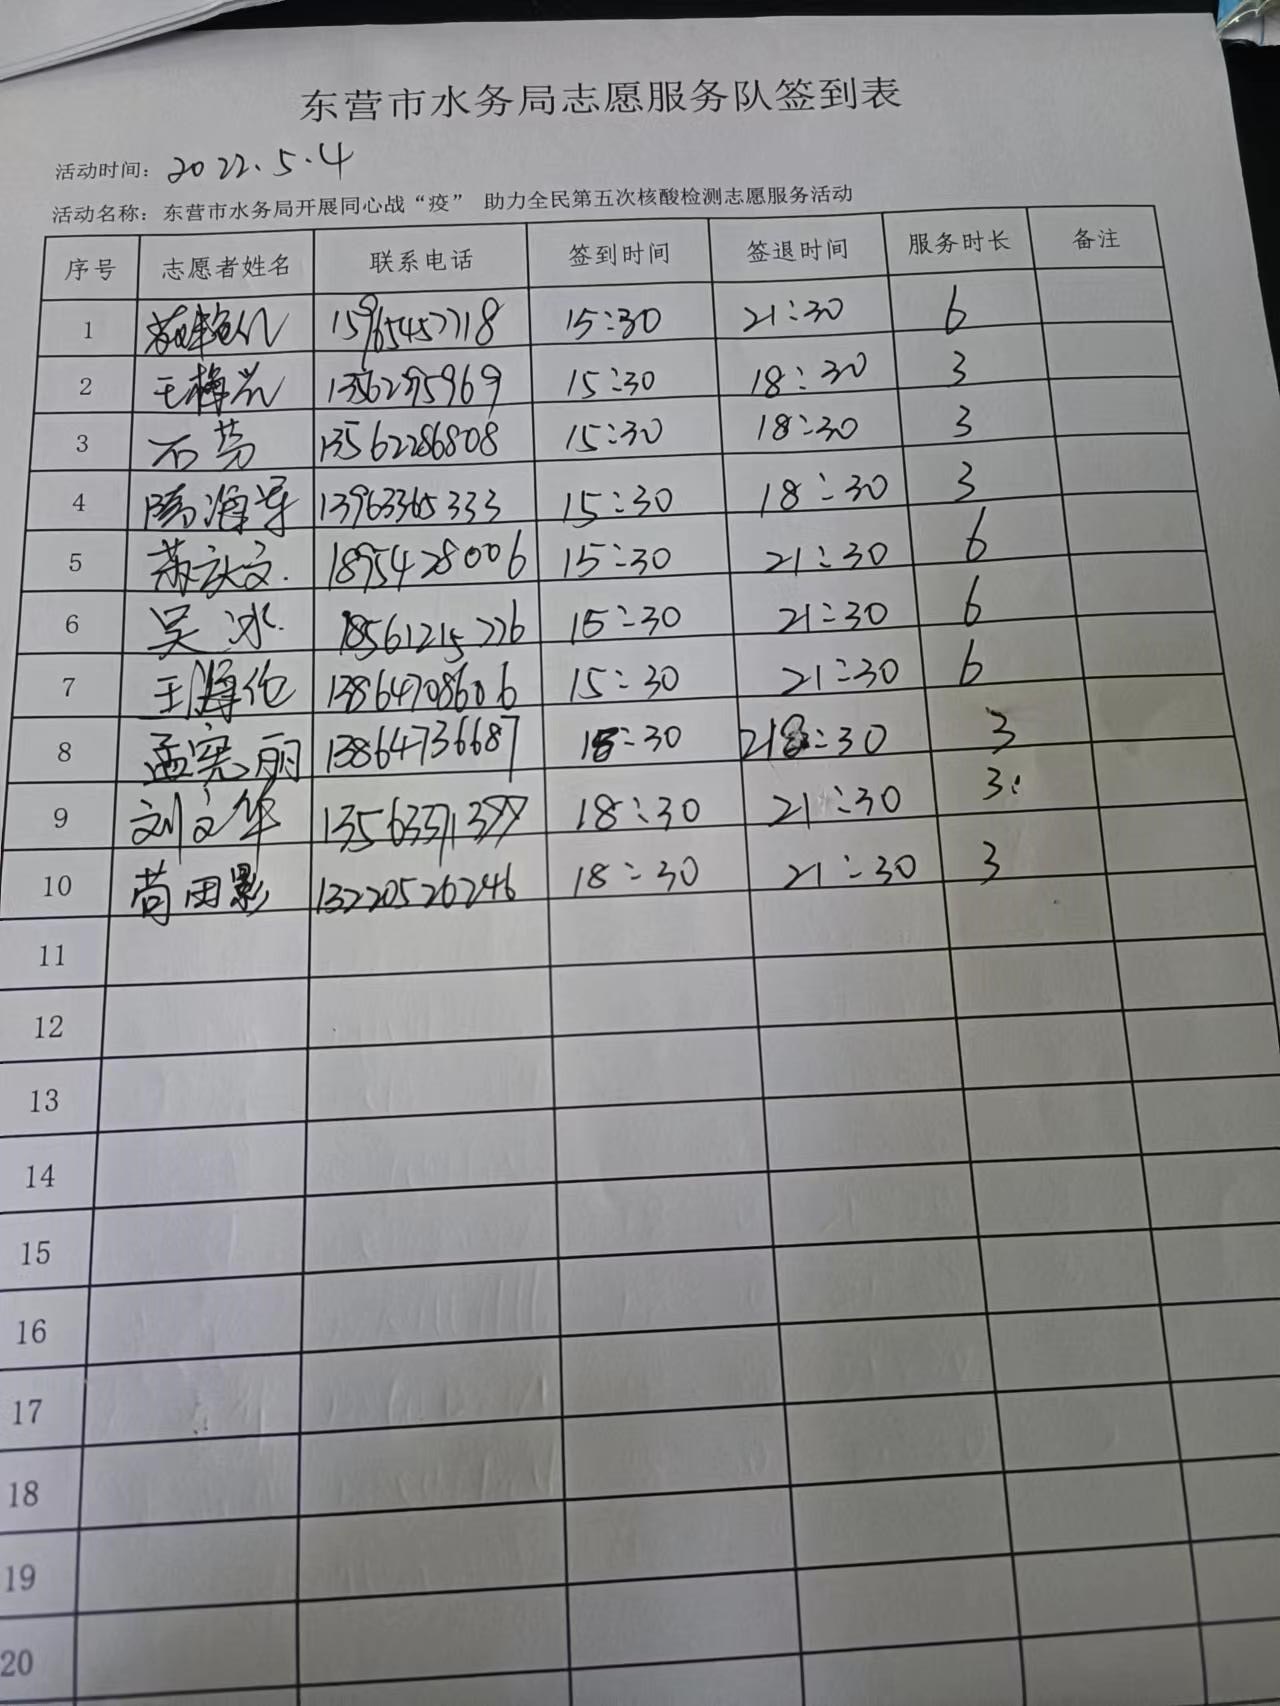 东营市水务局志愿服务队签到表
活动时间：2022.5.4
活动名称：东营市水务局开展同心战“疫” 助力全民第五次核酸检测志愿服务活动
序号 志愿者姓名 联系电话 签到时间 签退时间 服务时长 备注
1 15965457718 15:30 21:30 6
2 王梅 15:30 18:30 3
3 石 13562286808 15:30 18:30 3
4 海 13963365333 15:30 18:30 3
5 1895428006 15:30 21:30 6
6 吴冰 18561215776 15:30 21:30 6
7 王 13864708606 15:30 21:30 6
8 孟宪丽 13864736687 :30 :30 3
9 刘文华 18:30 21:30 3
10 苘田影 13220526246 18:30 21:30 3
11
12
13
14
15
16
17
18
19
20